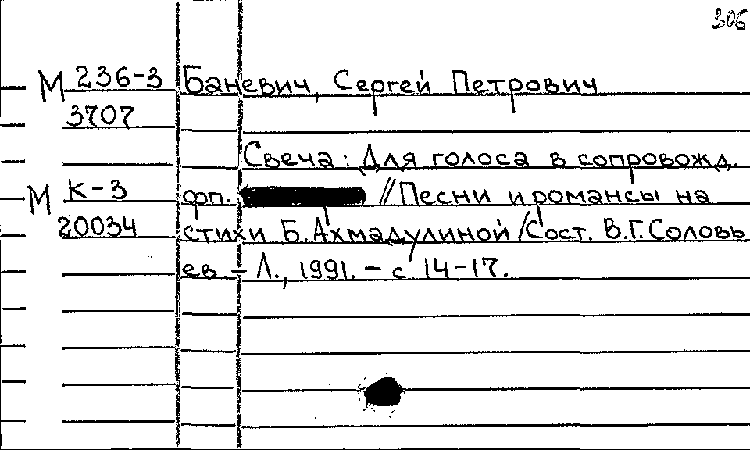 306
М 236-3 Баневич, Сергей Петрович
3707
Свеча: Для голоса в сопровожд.
М К-3 фп. // Песни и романсы на
20034 стихи Б. Ахмадулиной / Сост. В.Г. Соловь
ев – Л., 1991. – с 14-17.